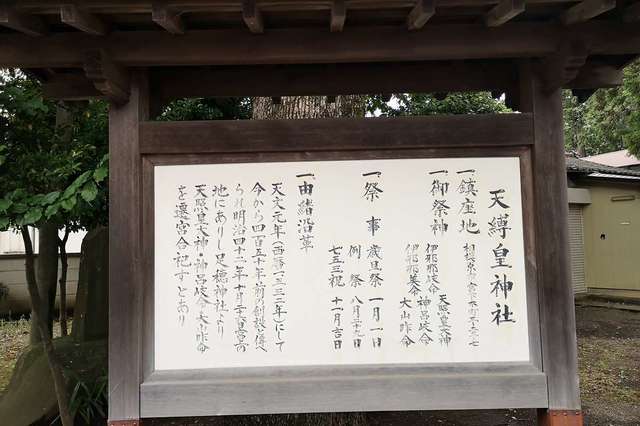 天縛皇神社
一、鎮座地 相模原市
一、御祭神 天照皇大神
伊邪那岐命 神呂岐命
伊邪那美命 大山咋命
一、祭事 歳旦祭 一月一日
例祭 八月二十九日
七五三祝 十一月吉日
一、由緒沿革
天文元年(西暦一五三二年)にして
今から四百五十年前の創設と伝へ
られ明治四十二年十月二十六日
地にありし足穂神社より
天照皇大神・神呂岐命・大山咋命
を遷宮合祀すとあり